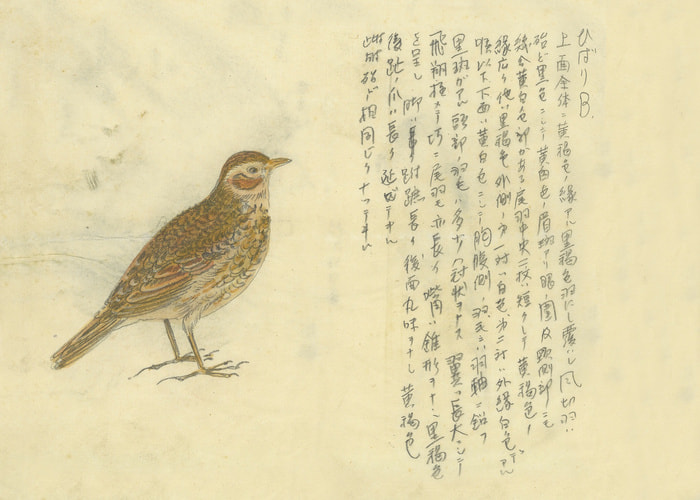 ひばり B.
上面全体ニ黄褐色ノ緣アル黒褐色羽にて覆ハレ風切羽ハ
殆ど黒色ニシテ黄白色ノ眉斑アリ眼ノ囲及頸側部ニモ
黄白色部がある尾羽中央二枚ハ短クシテ黄褐色ノ
緣広ク他ハ黒褐色外側ノ方一対ハ白色次ニ対ハ外緣白色デ
喉以下下面ハ黄白色ニシテ胸腹側ノ羽毛ニハ羽軸ニ沿フ
黒斑がアル頭部ノ羽毛ハ多少冠状ヲナス翼ハ長大ニシテ
飛翔極メテ巧ニ尾羽モ亦長ク嘴ハ錐形ヲナシ黒褐色
を呈シ脚ハ跗蹠長ク後面丸味ヲナシ黄褐色
後趾ノ爪ハ長ク
雌雄殆ンド相同じクナッテヰル